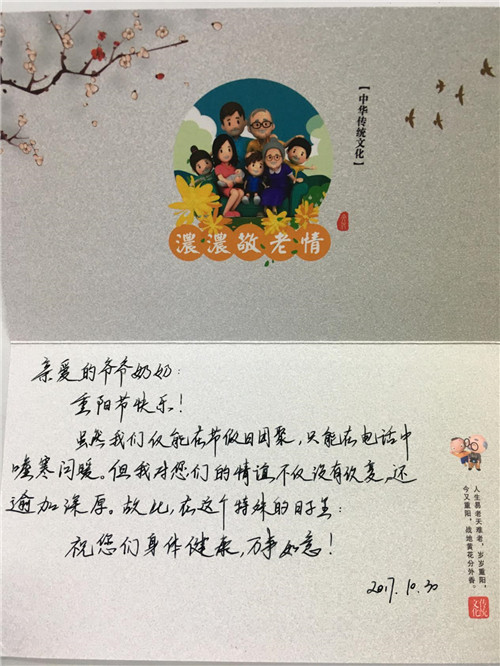 【中华传统文化】
濃濃敬老情
亲爱的爷爷奶奶:
重阳节快乐!
虽然我们仅能在节假日团聚,只能在电话中
嘘寒问暖。但我对您们的情谊,不仅没有改变,还
逾加深厚。故此,在这个特殊的日子里:
祝您们身体健康,万事如意!
2017.10.30
人生易老天难老,岁岁重阳,
今又重阳,战地黄花分外香。
传统文化